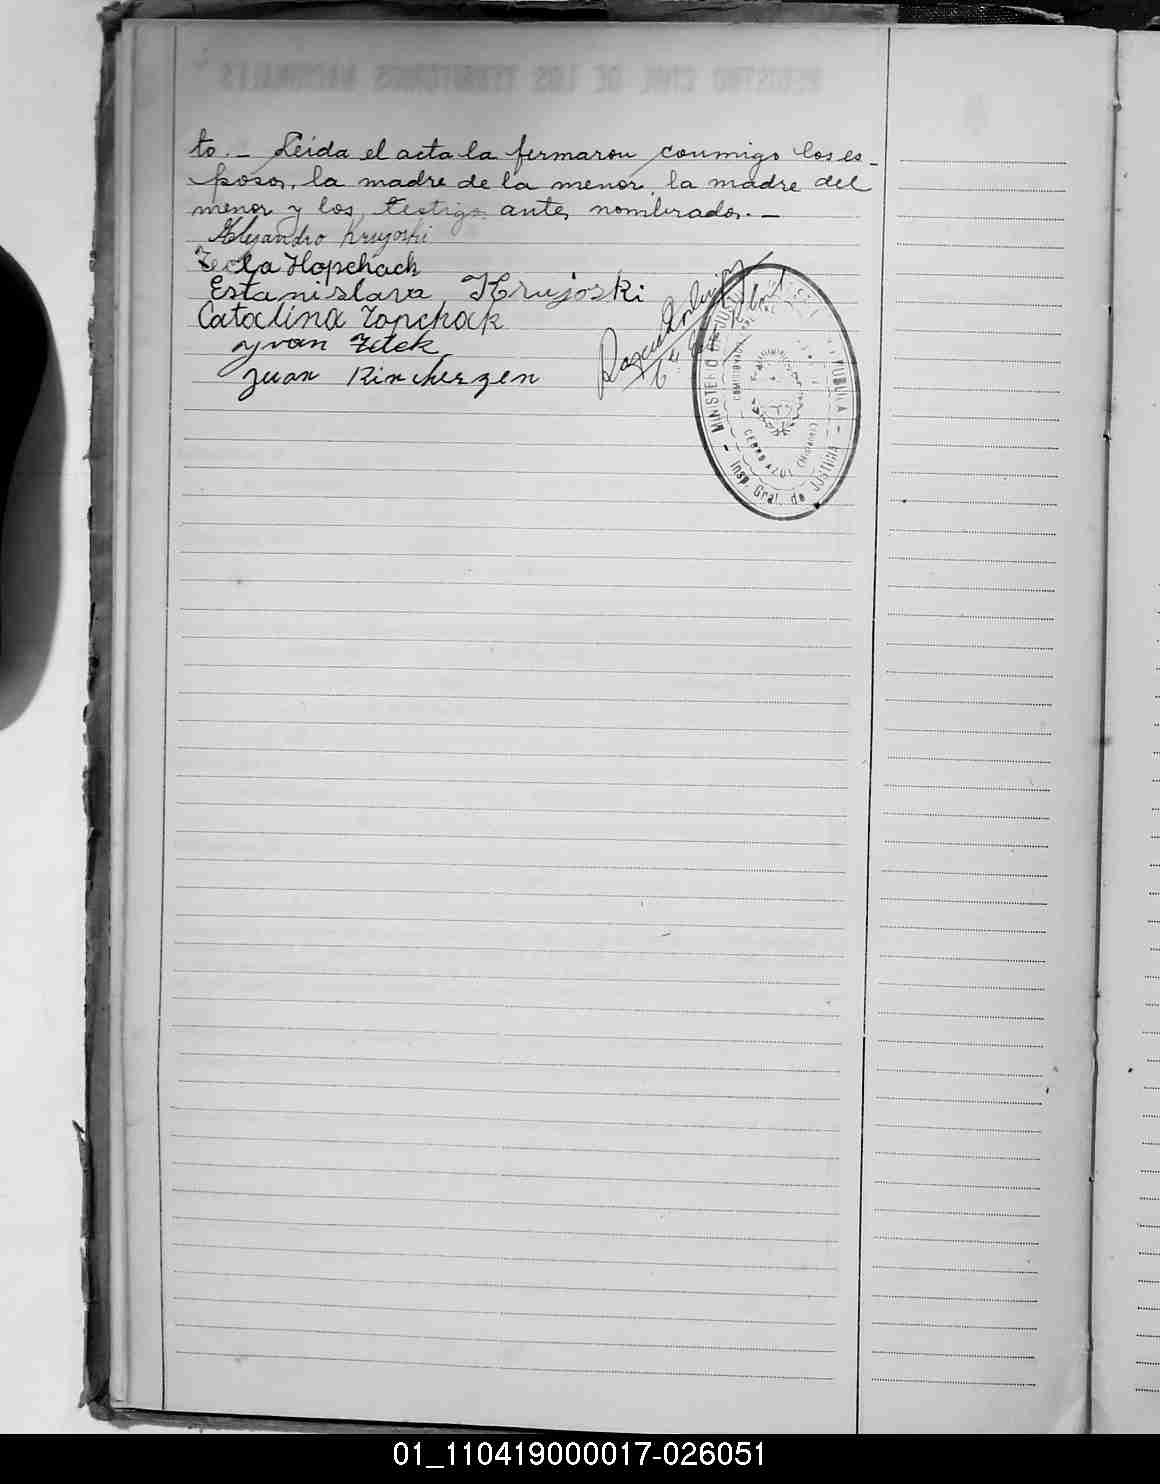 to._ Leida el acta la firmaron conmigo los es_
posos, la madre de la menor, la madre del
menor y los testigos antes nombrados._
Alejandro Krujoski
Tecla Hopchack
Estanislava Krujoski
Catalina Zopchak
Yvan Zetek
Juan Kinchergen
MINISTERIO DE JUSTICIA
PUBLICA
CERRO AZUL (Misiones)
Insp. Gral. de JUSTICIA
01_110419000017-026051